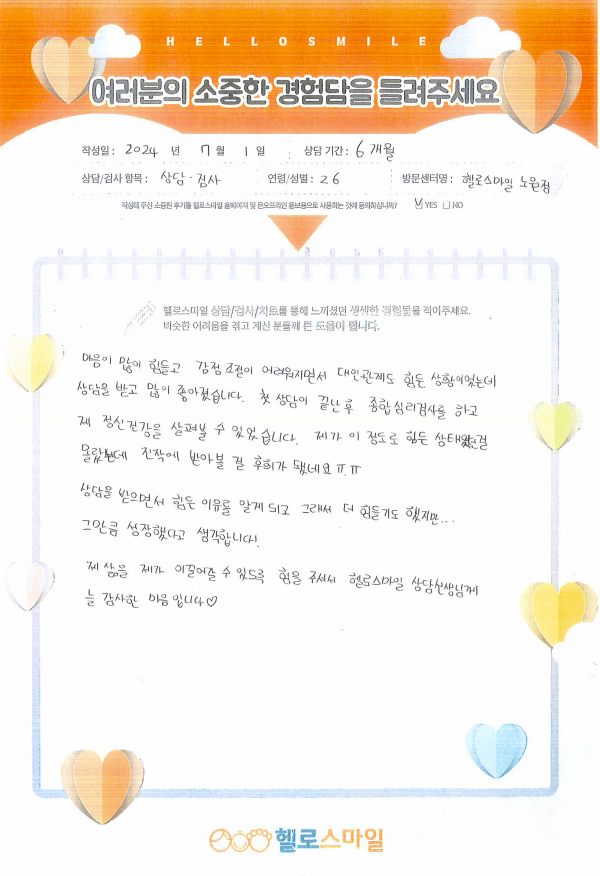 HELLOSMILE
여러분의 소중한 경험담을 들려주세요
작성일 : 2024 년 7 월 1 일 상담 기간 : 6개월
상담/검사 항목 : 상담·검사 연령/성별 : 26 방문센터명 : 헬로스마일 노원점
작성해 주신 소중한 후기를 헬로스마일 홈페이지 및 온오프라인 홍보용으로 사용하는 것에 동의하십니까? ☑ YES □ NO
헬로스마일 상담/검사/치료를 통해 느끼셨던 생생한 경험담을 적어주세요.
비슷한 어려움을 겪고 계신 분들께 큰 도움이 됩니다.
마음이 많이 힘들고 감정 조절이 어려워지면서 대인관계도 힘든 상황이었는데
상담을 받고 많이 좋아졌습니다. 첫 상담이 끝난 후 종합심리검사를 하고
제 정신건강을 살펴볼 수 있었습니다. 제가 이 정도로 힘든 상태였던걸
몰랐는데 진작에 받아볼 걸 후회가 됐네요 ㅠ.ㅠ
상담을 받으면서 힘든 이유를 알게 되고 그래서 더 힘들기도 했지만...
그만큼 성장했다고 생각합니다!
제 삶을 제가 이끌어갈 수 있도록 힘을 주셔서 헬로스마일 상담선생님께
늘 감사한 마음입니다♡
헬로스마일